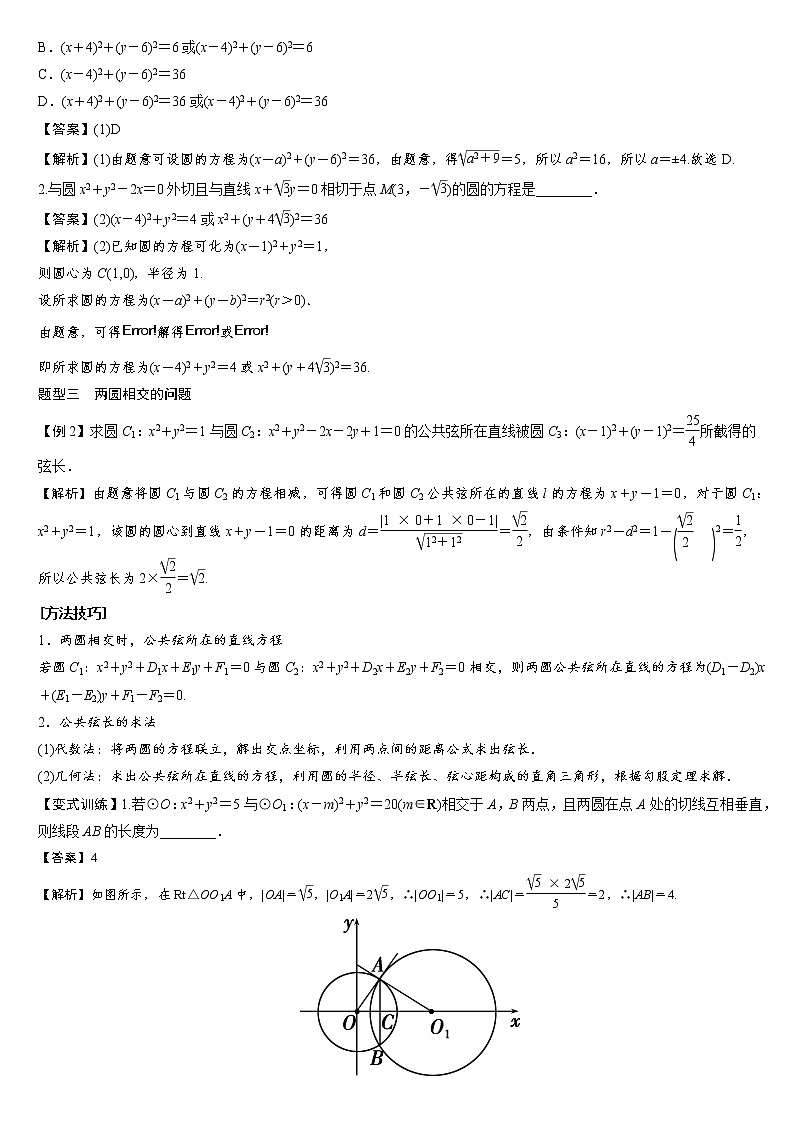 B．(x＋4)²＋(y－6)²＝6或(x－4)²＋(y－6)²＝6
C．(x－4)²＋(y－6)²＝36
D．(x＋4)²＋(y－6)²＝36或(x－4)²＋(y－6)²＝36
【答案】(1)D
【解析】(1)由题意可设圆的方程为(x－a)²＋(y－6)²＝36，由题意，得√(a²＋9)＝5，所以a²＝16，所以a＝±4.故选D.
2.与圆x²＋y²－2x＝0外切且与直线x＋√3y＝0相切于点M(3，－√3)的圆的方程是________．
【答案】(2)(x－4)²＋y²＝4或x²＋(y＋4√3)²＝36
【解析】(2)已知圆的方程可化为(x－1)²＋y²＝1，
则圆心为C(1,0)，半径为1.
设所求圆的方程为(x－a)²＋(y－b)²＝r²(r＞0)．
由题意，可得Error!解得Error!或Error!
即所求圆的方程为(x－4)²＋y²＝4或x²＋(y＋4√3)²＝36.
题型三　两圆相交的问题
【例2】求圆C₁：x²＋y²＝1与圆C₂：x²＋y²－2x－2y＋1＝0的公共弦所在直线被圆C₃：(x－1)²＋(y－1)²＝25/4所截得的
弦长．
【解析】由题意将圆C₁与圆C₂的方程相减，可得圆C₁和圆C₂公共弦所在的直线l的方程为x＋y－1＝0，对于圆C₁：
x²＋y²＝1，该圆的圆心到直线x＋y－1＝0的距离为d＝|1 × 0＋1 × 0－1|/√(1²＋1²)＝√2/2，由条件知r²－d²＝1－(√2/2)²＝1/2，
所以公共弦长为2×√2/2＝√2.
[方法技巧]
1．两圆相交时，公共弦所在的直线方程
若圆C₁：x²＋y²＋D₁x＋E₁y＋F₁＝0与圆C₂：x²＋y²＋D₂x＋E₂y＋F₂＝0相交，则两圆公共弦所在直线的方程为(D₁－D₂)x
＋(E₁－E₂)y＋F₁－F₂＝0.
2．公共弦长的求法
(1)代数法：将两圆的方程联立，解出交点坐标，利用两点间的距离公式求出弦长．
(2)几何法：求出公共弦所在直线的方程，利用圆的半径、半弦长、弦心距构成的直角三角形，根据勾股定理求解．
【变式训练】1.若⊙O：x²＋y²＝5与⊙O₁：(x－m)²＋y²＝20(m∈R)相交于A，B两点，且两圆在点A处的切线互相垂直，
则线段AB的长度为________．
【答案】4
【解析】如图所示，在Rt△OO₁A中，|OA|＝√5，|O₁A|＝2√5，∴|OO₁|＝5，∴|AC|＝√5 × 2√5/5＝2，∴|AB|＝4.
y
A
O C O₁ x
B